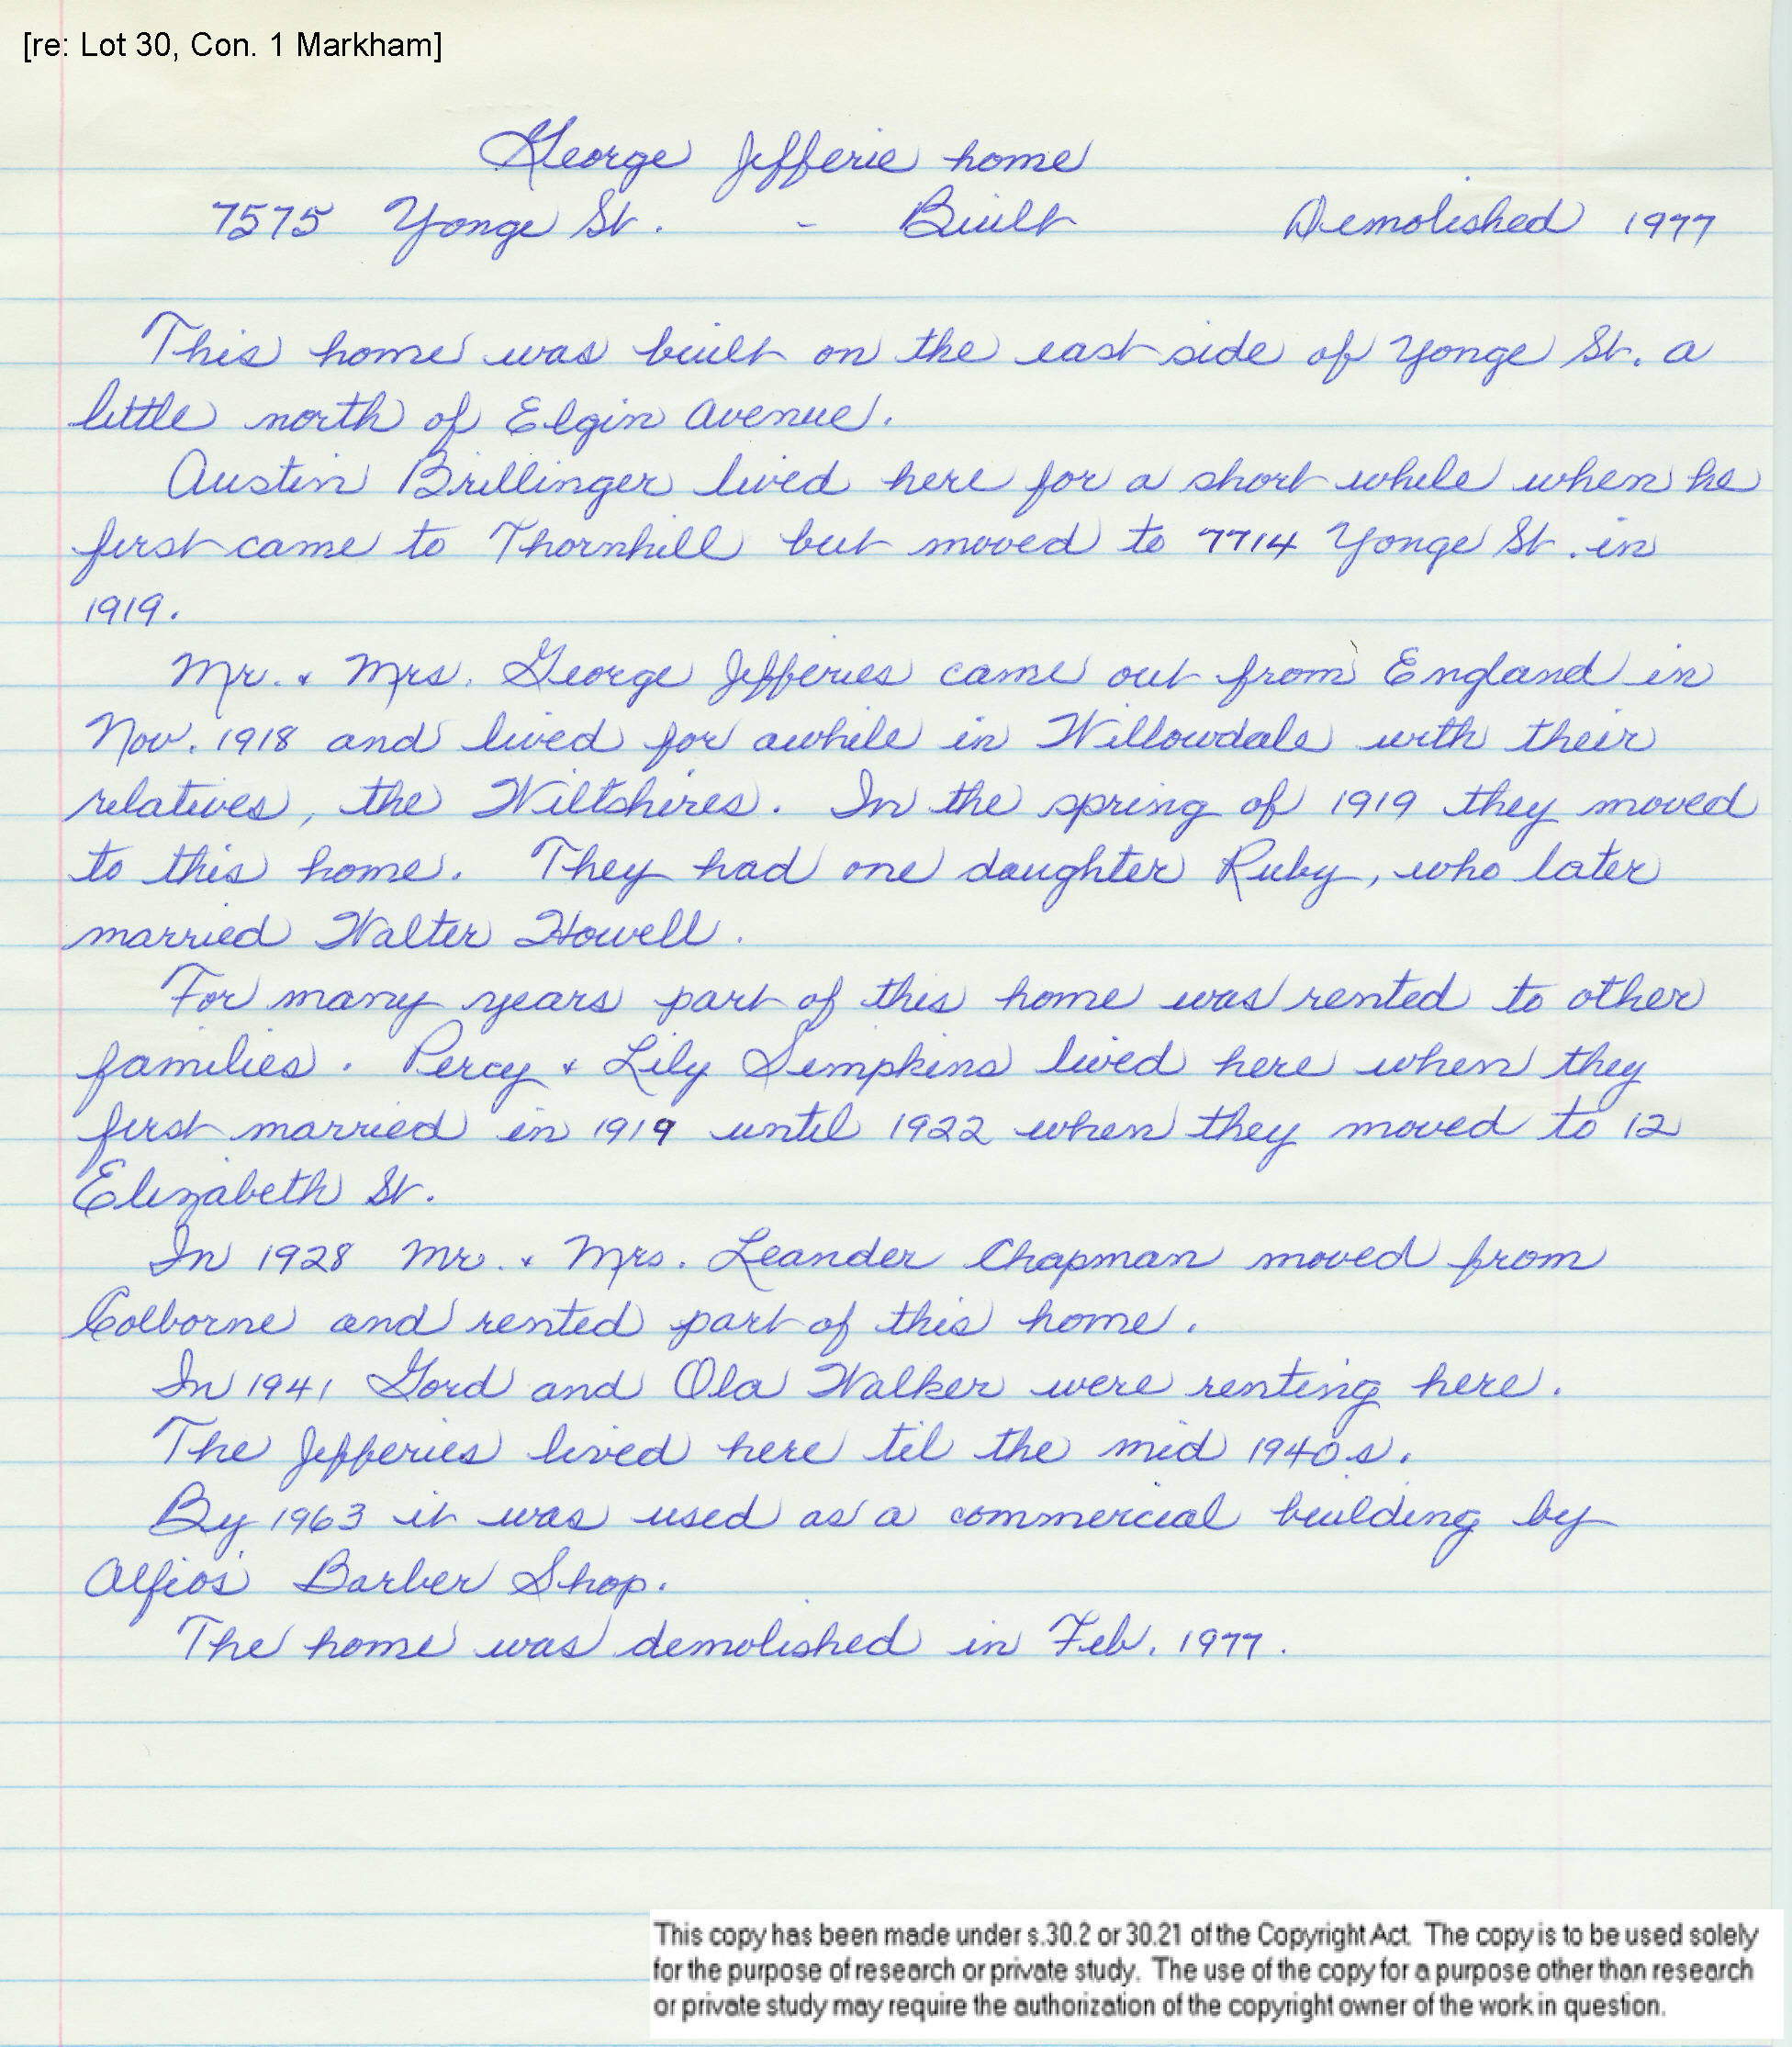 [re: Lot 30, Con. 1 Markham]
George Jefferie home
7575 Yonge St. - Built Demolished 1977
This home was built on the east side of Yonge St. a
little north of Elgin Avenue.
Austin Brillinger lived here for a short while when he
first came to Thornhill but moved to 7714 Yonge St. in
1919.
Mr. & Mrs. George Jefferies came out from England in
Nov. 1918 and lived for awhile in Willowdale with their
relatives, the Wiltshires. In the spring of 1919 they moved
to this home. They had one daughter Ruby, who later
married Walter Howell.
For many years part of this home was rented to other
families. Percy & Lily Simpkins lived here when they
first married in 1919 until 1922 when they moved to 12
Elizabeth St.
In 1928 Mr. & Mrs. Leander Chapman moved from
Colborne and rented part of this home.
In 1941 Gord and Ola Walker were renting here.
The Jefferies lived here til the mid 1940s.
By 1963 it was used as a commercial building by
Alfio's Barber Shop.
The home was demolished in Feb. 1977.
This copy has been made under s.30.2 or 30.21 of the Copyright Act. The copy is to be used solely
for the purpose of research or private study. The use of the copy for a purpose other than research
or private study may require the authorization of the copyright owner of the work in question.